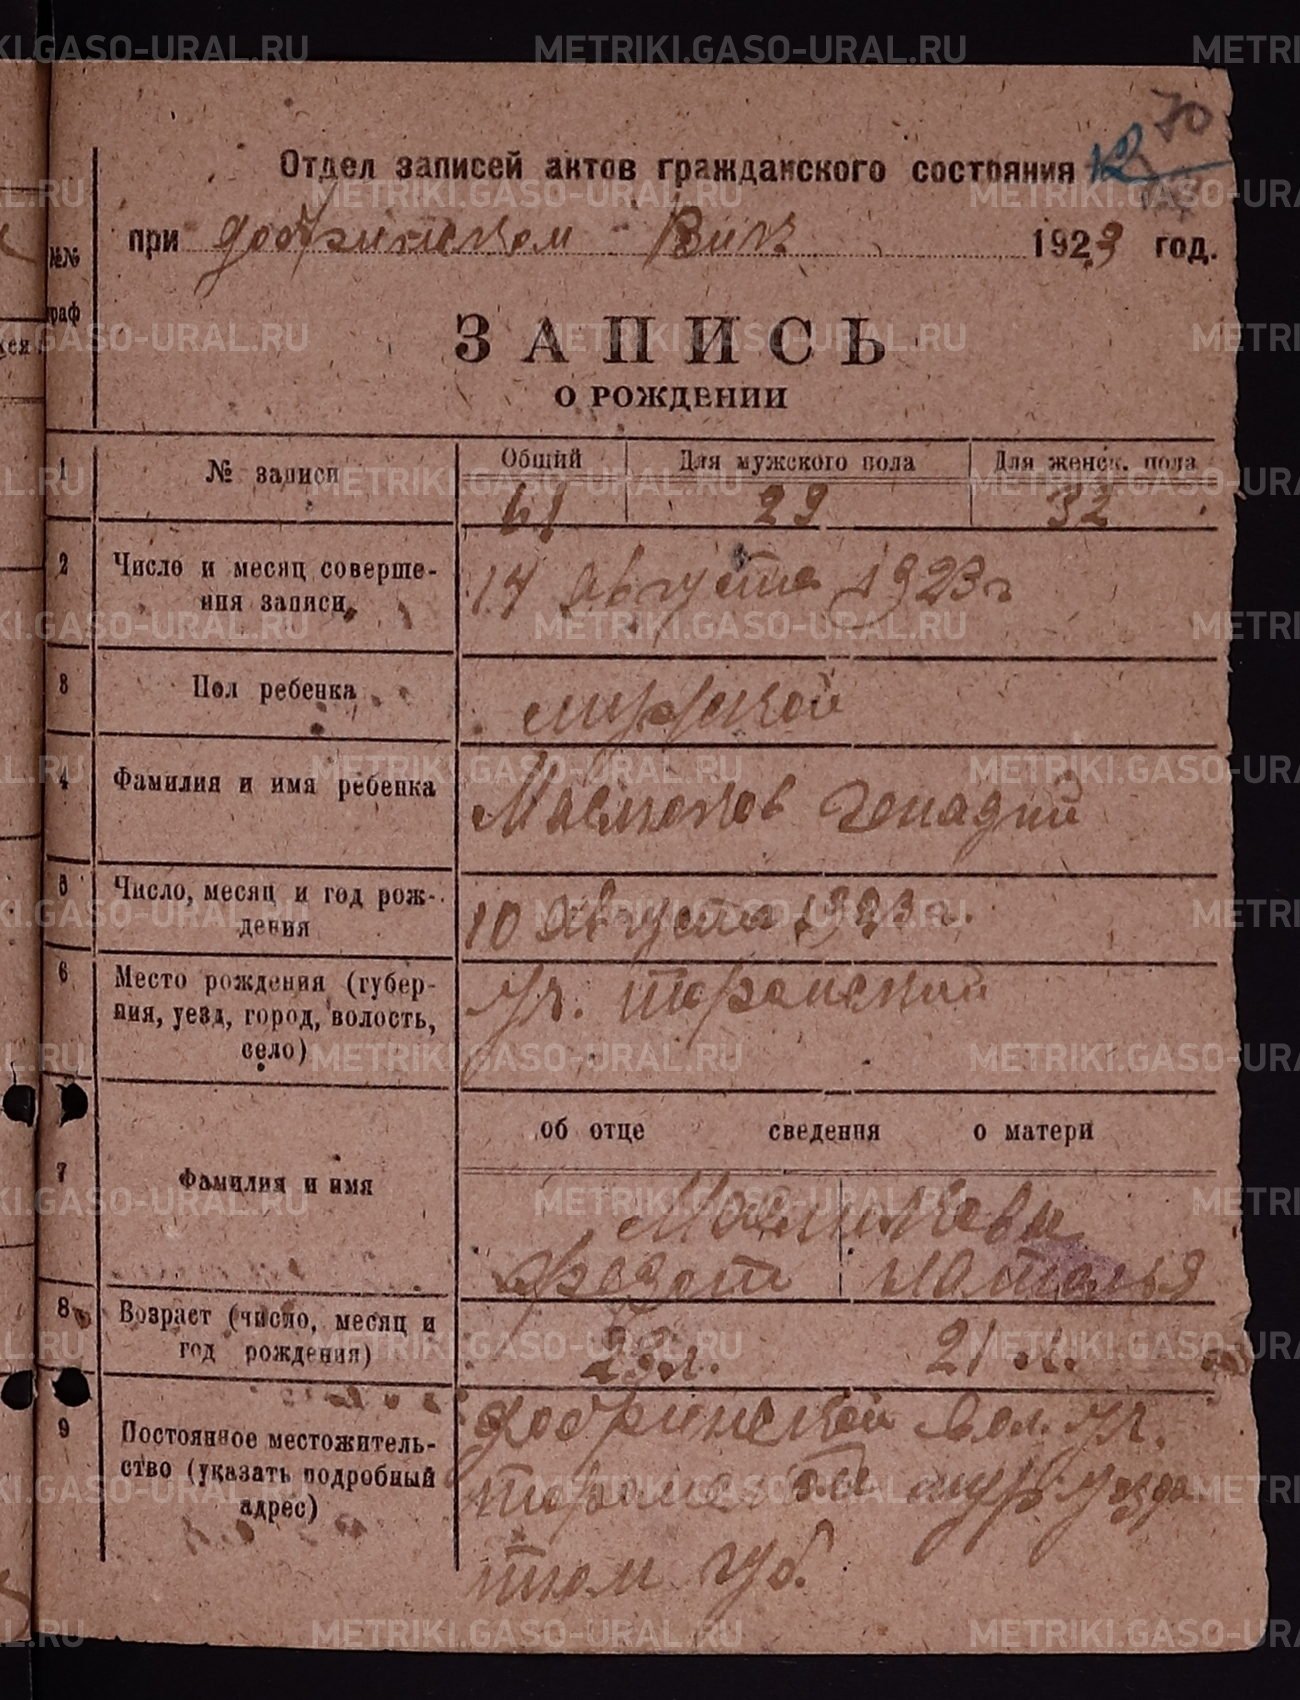 70
Отдел записей актов гражданского состояния
при добринском Вик 1923 год.
№№
граф
ЗАПИСЬ
О РОЖДЕНИИ
1 № записи Общий Для мужского пола Для женск. пола
61 29 32
2 Число и месяц соверше-
ния записи 14 августа 1923 г
3 Пол ребенка мужской
4 Фамилия и имя ребенка Маслюков Генадий
5 Число, месяц и год рож-
дения 10 августа 1923 г.
6 Место рождения (губер-
ния, уезд, город, волость,
село) уч.
об отце сведения о матери
7 Фамилия и имя
Федот Наталья
8 Возраст (число, месяц и
год рождения) 23 л. 21 л.
9 Постоянное местожитель-
ство (указать подробный
адрес) добринской вол. уч.
уезда
тюм губ.
METRIKI.GASO-URAL.RU